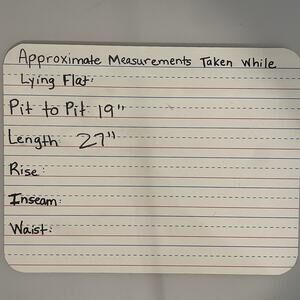 Approximate Measurements Taken While
Lying Flat:
Pit to Pit 19"
Length 27"
Rise:
Inseam:
Waist: